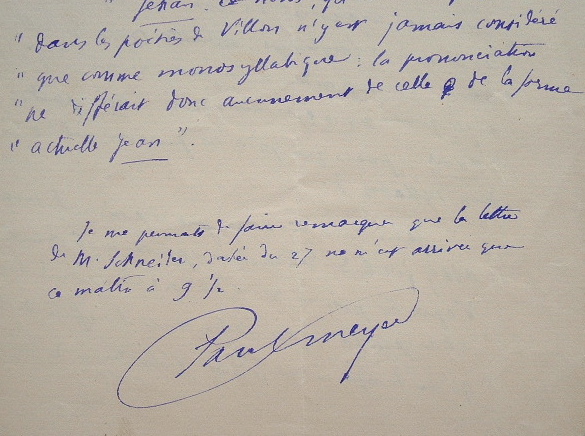 " Jehan.
" dans les poésies de Villon n'y est jamais considéré
" que comme monosyllabique : la prononciation
" ne différait donc aucunement de celle de la forme
" actuelle Jean ".
Je me permets de faire remarquer que la lettre
de M. Schneider, datée du 27 ne m'est arrivée que
ce matin à 9 ½.
Paul Meyer